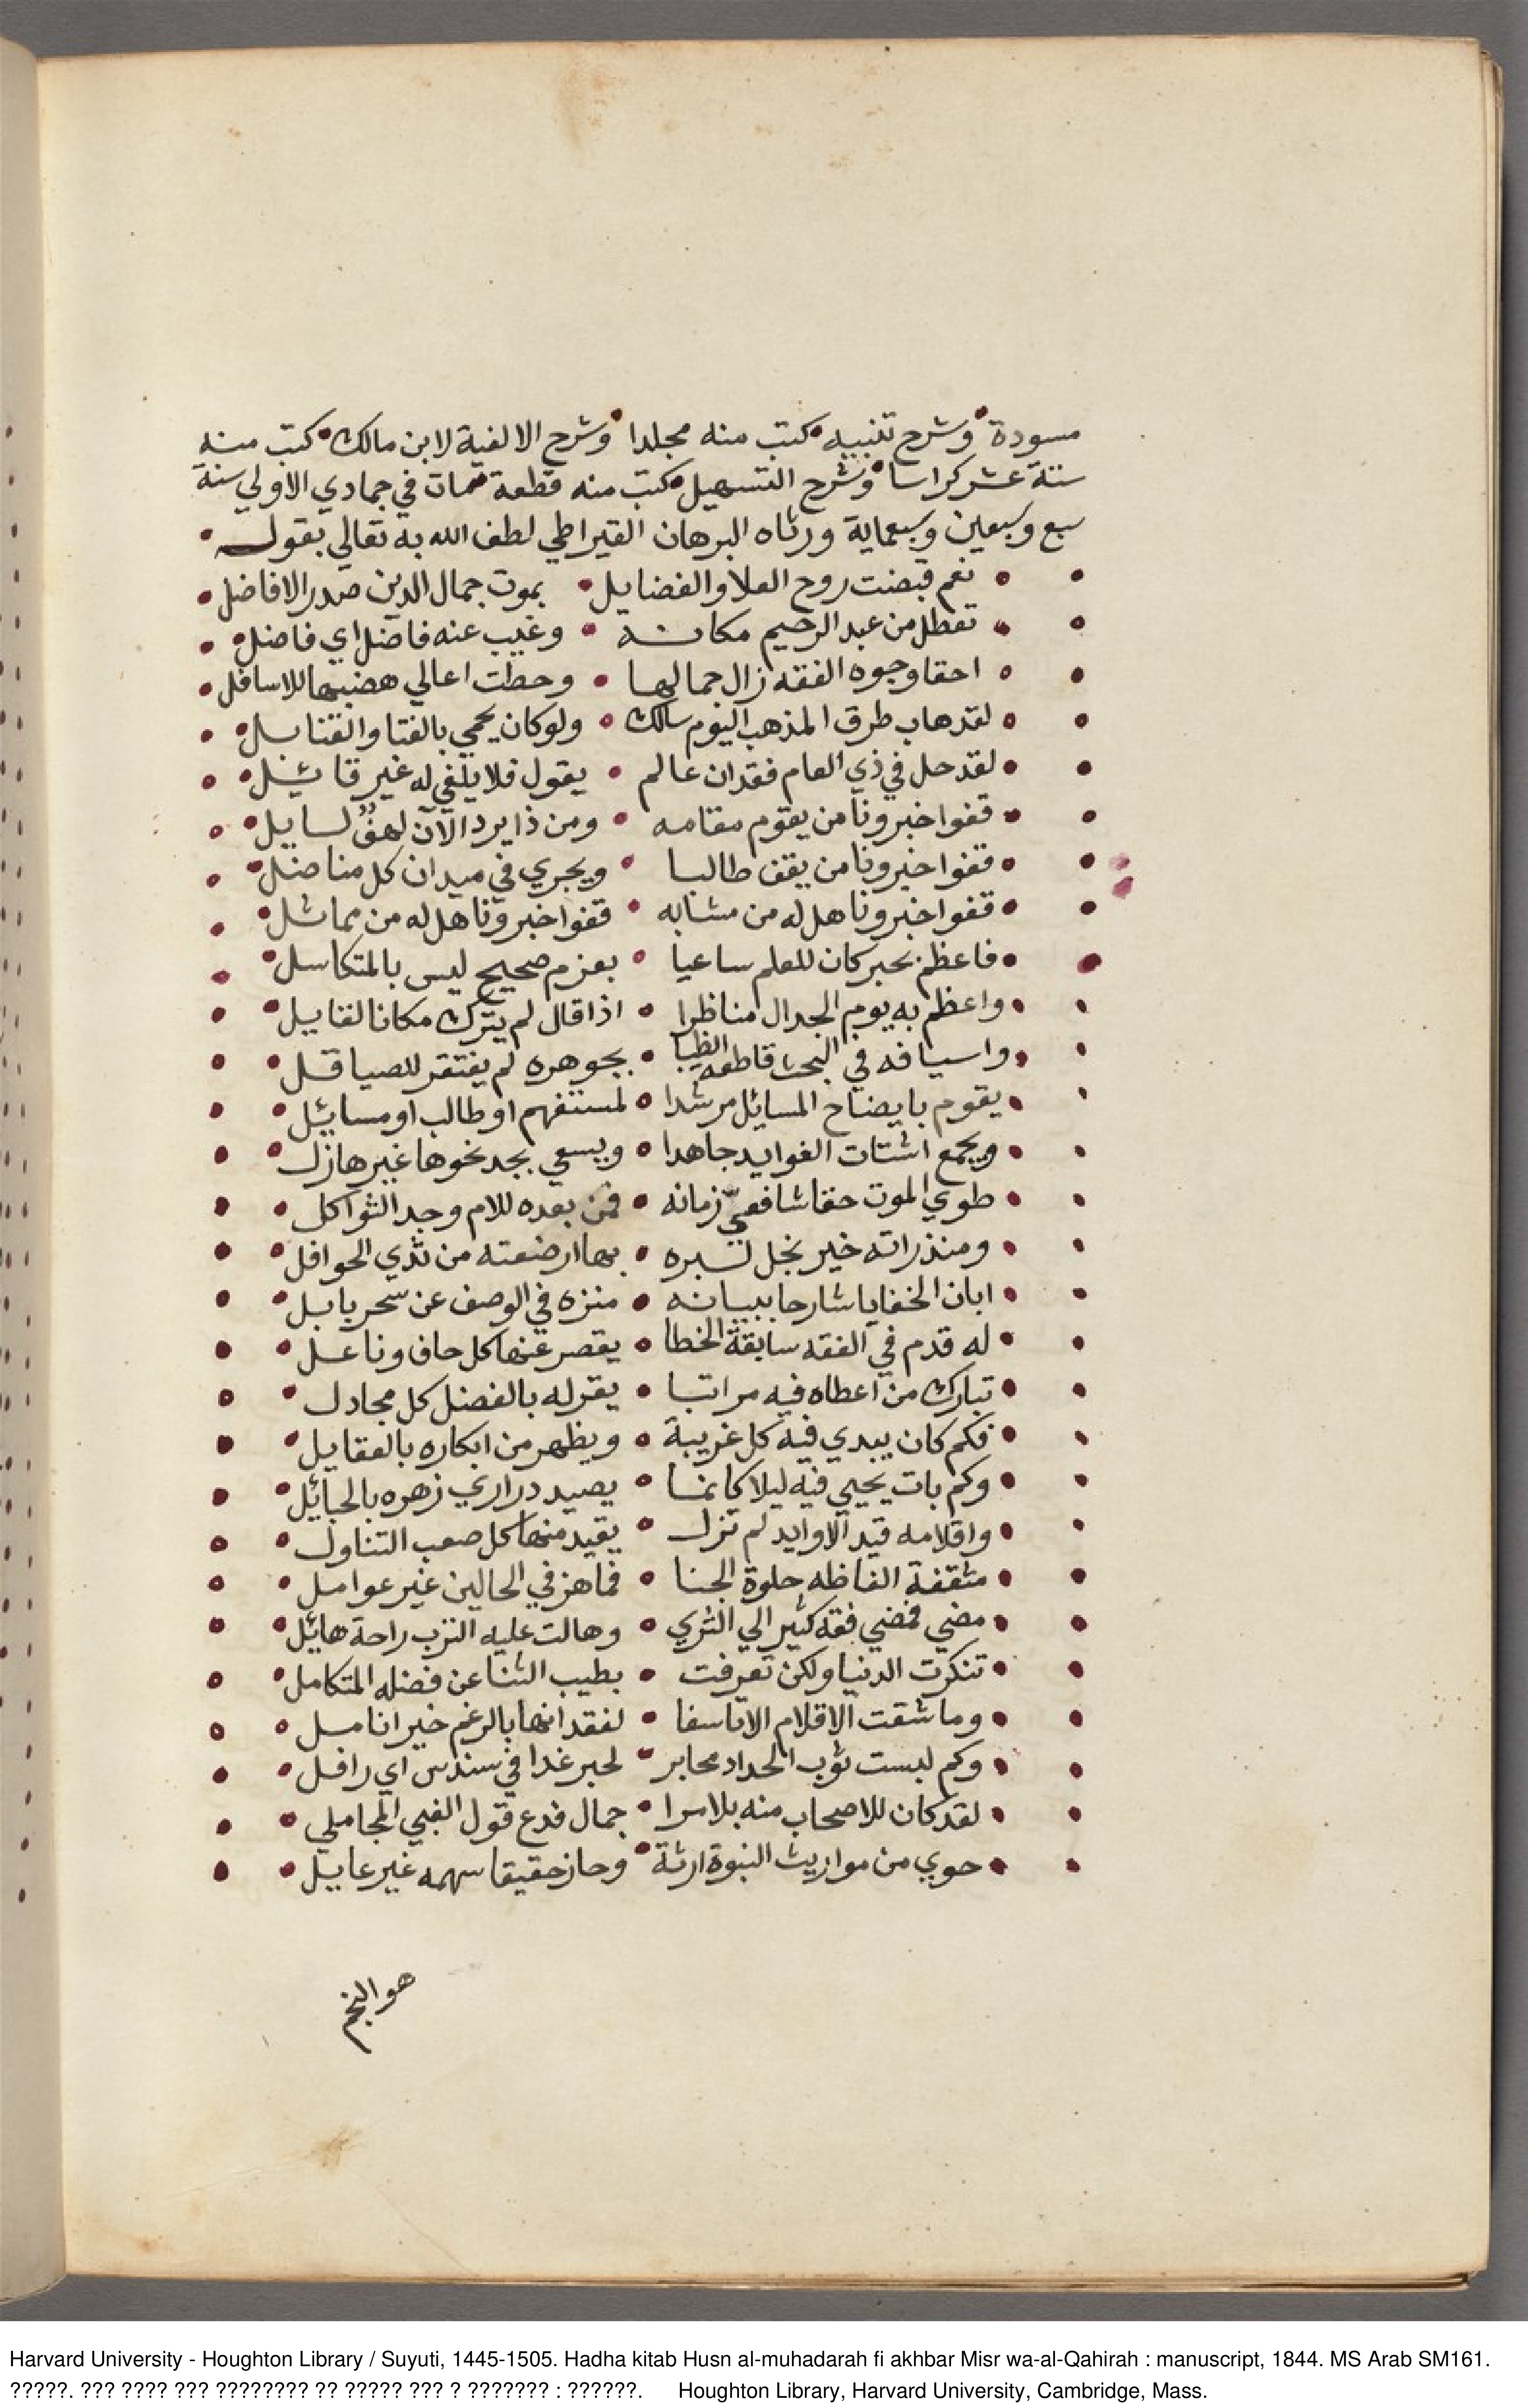 مسودة وشرح تنبيه كتب منه مجلدا وشرح الالفية لابن مالك كتب منه
ستة عشر كراسا وشرح التسهيل كتب منه قطعة مات في جمادي الاولي سنة
سبع وسبعين وسبعماية ورثاه البرهان القيراطي لطف الله به تعالي بقول
نعم قبضت روح العلا والفضايل بموت جمال الدين صدر الافاضل
تعطل من عبد الرحيم مكانه وغيب عنه فاضل اي فاضل
احقا وجوه الفقه زال جمالها وحطت اعالي هضبها للاسافل
لقد هاب طرق المذهب اليوم سالك ولو كان يحمي بالفتا والقنابل
لقد حل في ذي العام فقدان عالم يقول فلا يلفي له غير قائل
قفوا خبرونا من يقوم مقامه ومن ذا يرد الآن لهف لسايل
قفوا خبرونا من يقف طالبا ويجري في ميدان كل مناضل
قفوا خبرونا هل له من مشابه قفوا خبرونا هل له من مماثل
فاعظم بحبر كان للعلم ساعيا بعزم صحيح ليس بالمتكاسل
واعظم به يوم الجدال مناظرا اذا قال لم يترك مكانا لقايل
واسيافه في البحث قاطعه الظبا بجوهره لم يفتقر للصياقل
يقوم بايضاح المسائل مرشدا لمستفهم او طالب او مسائل
ويجمع اشتات الفوايد جاهدا ويسعي بجد نحوها غير هازل
طوي الموت حقا شافعيّ زمانه فمن بعده للام وجد الثواكل
ومنذ راته خير نجل لسبره بها ارضعته من ثدي الحوافل
ابان الخفايا شارحا ببيانه منزه في الوصف عن سحر بابل
له قدم في الفقه سابقة الخطا يقصر عنها كل حاف وناعل
تبارك من اعطاه فيه مراتبا يقر له بالفضل كل مجادل
فكم كان يبدي فيه كل غريبة ويظهر من ابكاره بالعقايل
وكم بات يحيي فيه ليلا كانما يصيد دراري زهره بالحبائل
واقلامه قيد الاوابد لم تزل يقيد منها كل صعب التناول
مثقفة الفاظه حلوة الجنا فما هز في الحالين غير عوامل
مضي فمضي فقه كثير الي الثري وهالت عليه الترب راحة هائل
تنكرت الدنيا ولكن تعرفت بطيب الثنا عن فضله المتكامل
وما شقت الاقلام الا تاسفا لفقدانها بالرغم خير انامل
وكم لبست ثوب الحداد محابر لحبر غدا في سندس اي رافل
لقد كان للاصحاب منه بلا مرا جمال فدع قول الغبي المجاملي
حوي من مواريث النبوة ارثة وحاز حقيقا سهمه غير عايل
هو النجم
Harvard University - Houghton Library / Suyuti, 1445-1505. Hadha kitab Husn al-muhadarah fi akhbar Misr wa-al-Qahirah : manuscript, 1844. MS Arab SM161.
?????. ??? ???? ??? ???????? ?? ????? ??? ? ??????? : ??????. Houghton Library, Harvard University, Cambridge, Mass.